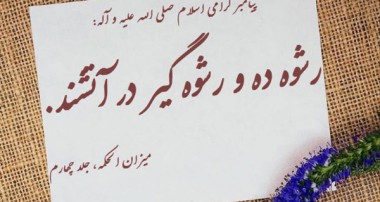 پیامبر گرامی اسلام صلی الله علیه و آله:
رشوه ده و رشوه گیر در آتشند.
میزان الحکمه، جلد چهارم